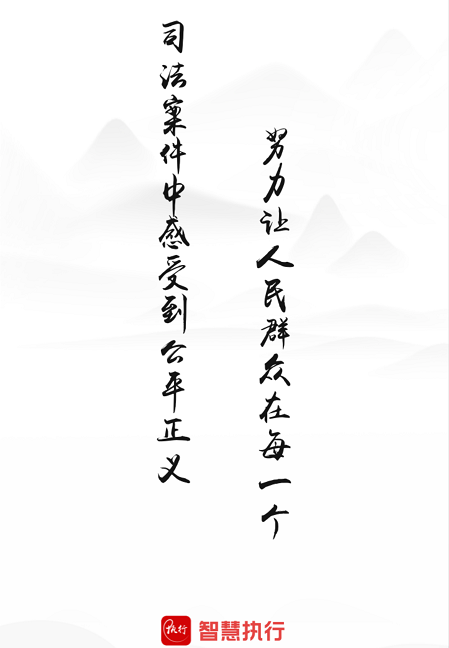 努力让人民群众在每一个
司法案件中感受到公平正义
执行
智慧执行